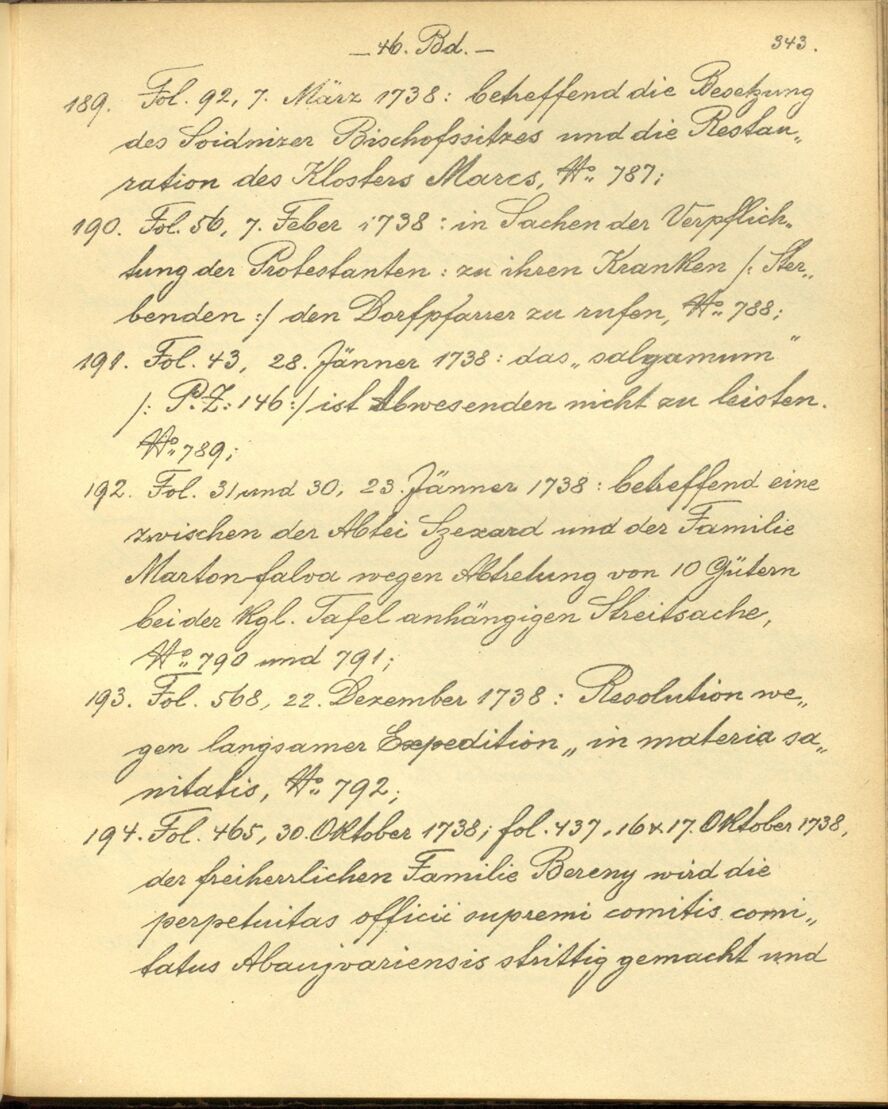 – 46. Bd. –
343.
189. Fol. 92, 7. März 1738: betreffend die Besetzung
des Soidnizer Bischofssitzes und die Restau„
ration des Klosters Marcs, No. 787;
190. Fol. 56, 7. Feber 1738: in Sachen der Verpflich„
tung der Protestanten: zu ihren Kranken /: Ster„
benden :/ den Dorfpfarrer zu rufen, No. 788;
191. Fol. 43, 28. Jänner 1738: das „salgamum"
/: P.Z: 146:/ ist Abwesenden nicht zu leisten.
No. 789;
192. Fol. 31 und 30, 23. Jänner 1738: betreffend eine
zwischen der Abtei Szexard und der Familie
Martonfalva wegen Abtretung von 10 Gütern
bei der Kgl. Tafel anhängigen Streitsache,
No. 790 und 791;
193. Fol. 568, 22. Dezember 1738: Resolution we„
gen langsamer Expedition „in materia sa„
nitatis, No. 792;
194. Fol. 465, 30. Oktober 1738; fol. 437, 16 & 17. Oktober 1738,
der freiherrlichen Familie Bereny wird die
perpetuitas officii supremi comitis comi„
tatus Abaujvariensis strittig gemacht und